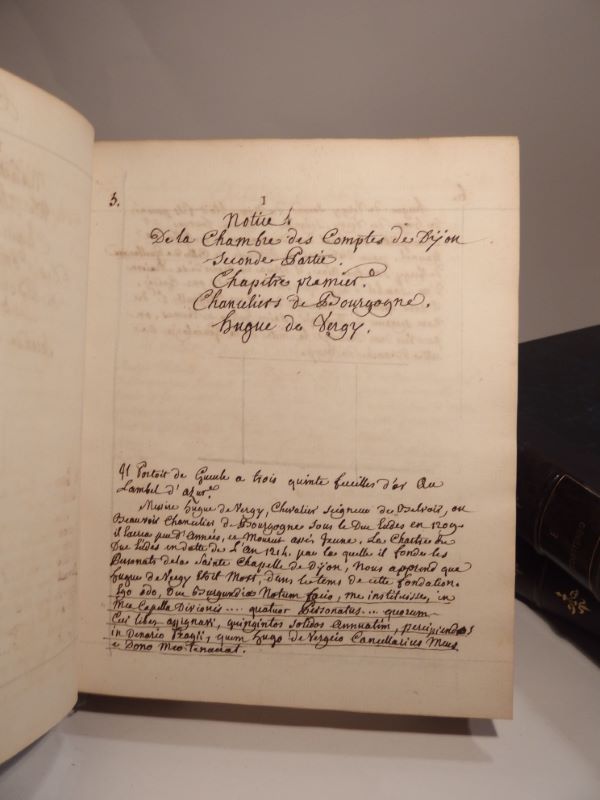 3.
1
Notice
De la Chambre des Comptes de Dijon
Seconde Partie.
Chapitre premier.
Chanceliers de Bourgogne.
hugue de Vergy.
Il Portoit de Gueule a trois quinte feuilles d'or Au
Lambel d'azur.
Messire hugue de Vergy, Chevalier Seigneur de Belvoir, ou
Beauvoir Chancelier de Bourgogne Sous le Duc Eudes en 1209
il Vecu peu d'Années, et Mourut assés Jeune. La Chartre du
Duc Eudes en date de L'An 1214. par la quelle il fonda les
Personats de la Sainte Chapelle de Dijon, Nous apprend que
hugue de Vergy Etoit Mort, dans le tems de cette fondation.
Ego odo, Dux Burgundiæ Notum facio, me instituisse, in
Mea Capella Divionis .... quatuor Personatus ... quorum
Cui libet assignavi, quingintos Solidos Annuatim, percipiendos
in Denario, quem hugo de Vergeio Cancellarius Meus
e Dono Meo tenuerat.